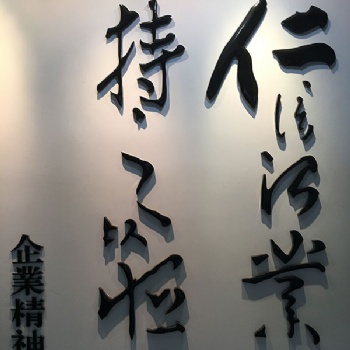 仁信治業
持之以恒
企業精神